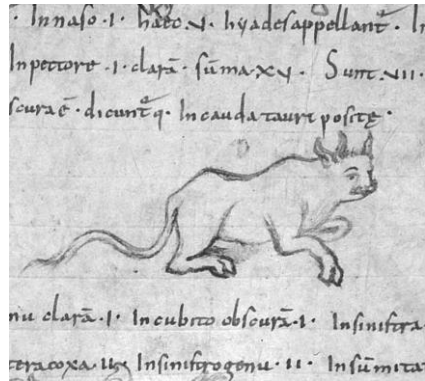 · In naso · I · haec · V · hyades appellant̄ · In
In pectore · I · clarā · sūma · XV · Sunt · VII ·
scura ē · dicunt̄ q · In cauda tauri positę
nu clarā · I · In cubito obscurā · I · In sinistra
tera coxa · In sinistro genu · II · In sūmita